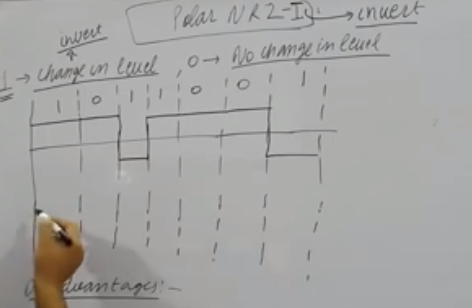 Polar NRZ-I → invert
invert
1 → change in level, 0 → No change in level
1 0 1 1 0 0 1
advantages:-